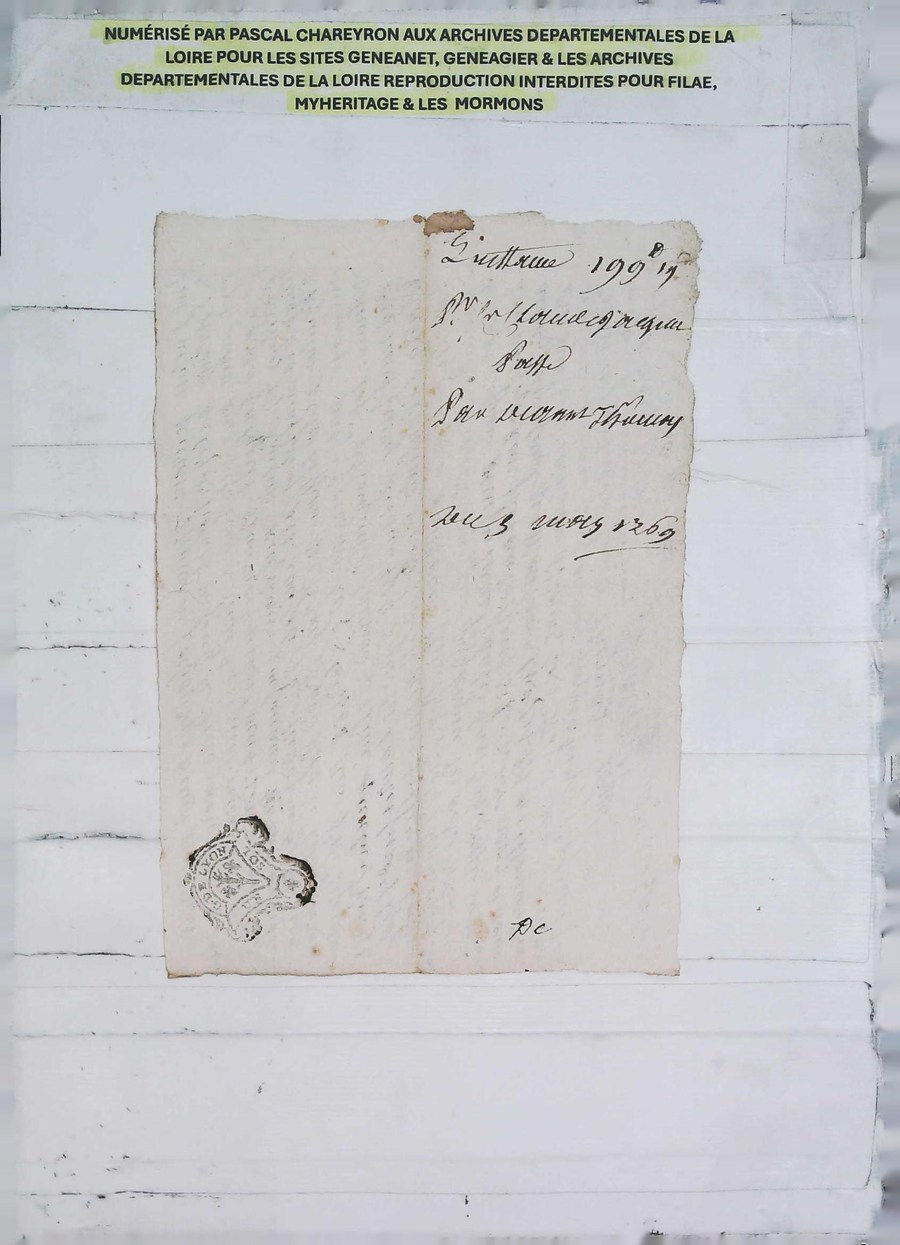 NUMÉRISÉ PAR PASCAL CHAREYRON AUX ARCHIVES DEPARTEMENTALES DE LA
LOIRE POUR LES SITES GENEANET, GENEAGIER & LES ARCHIVES
DEPARTEMENTALES DE LA LOIRE REPRODUCTION INTERDITES POUR FILAE,
MYHERITAGE & LES MORMONS
Quittance 199
Pr Sr Claude Jacque
Passe
Par Thomas
Du 3 may 1769
G·DE LYON SOL
Dc